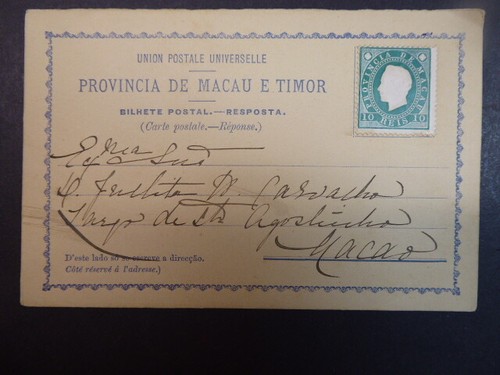 UNION POSTALE UNIVERSELLE
PROVINCIA DE MACAU E TIMOR
BILHETE POSTAL.—RESPOSTA.
(Carte postale.—Réponse.)
PROVINCIA DE MACAU
10 REIS 10
Exma Snra
D. M. Carvalho
Largo de Sto Agostinho
Macao
D'este lado só se escreve a direcção.
Côté réservé à l'adresse.)